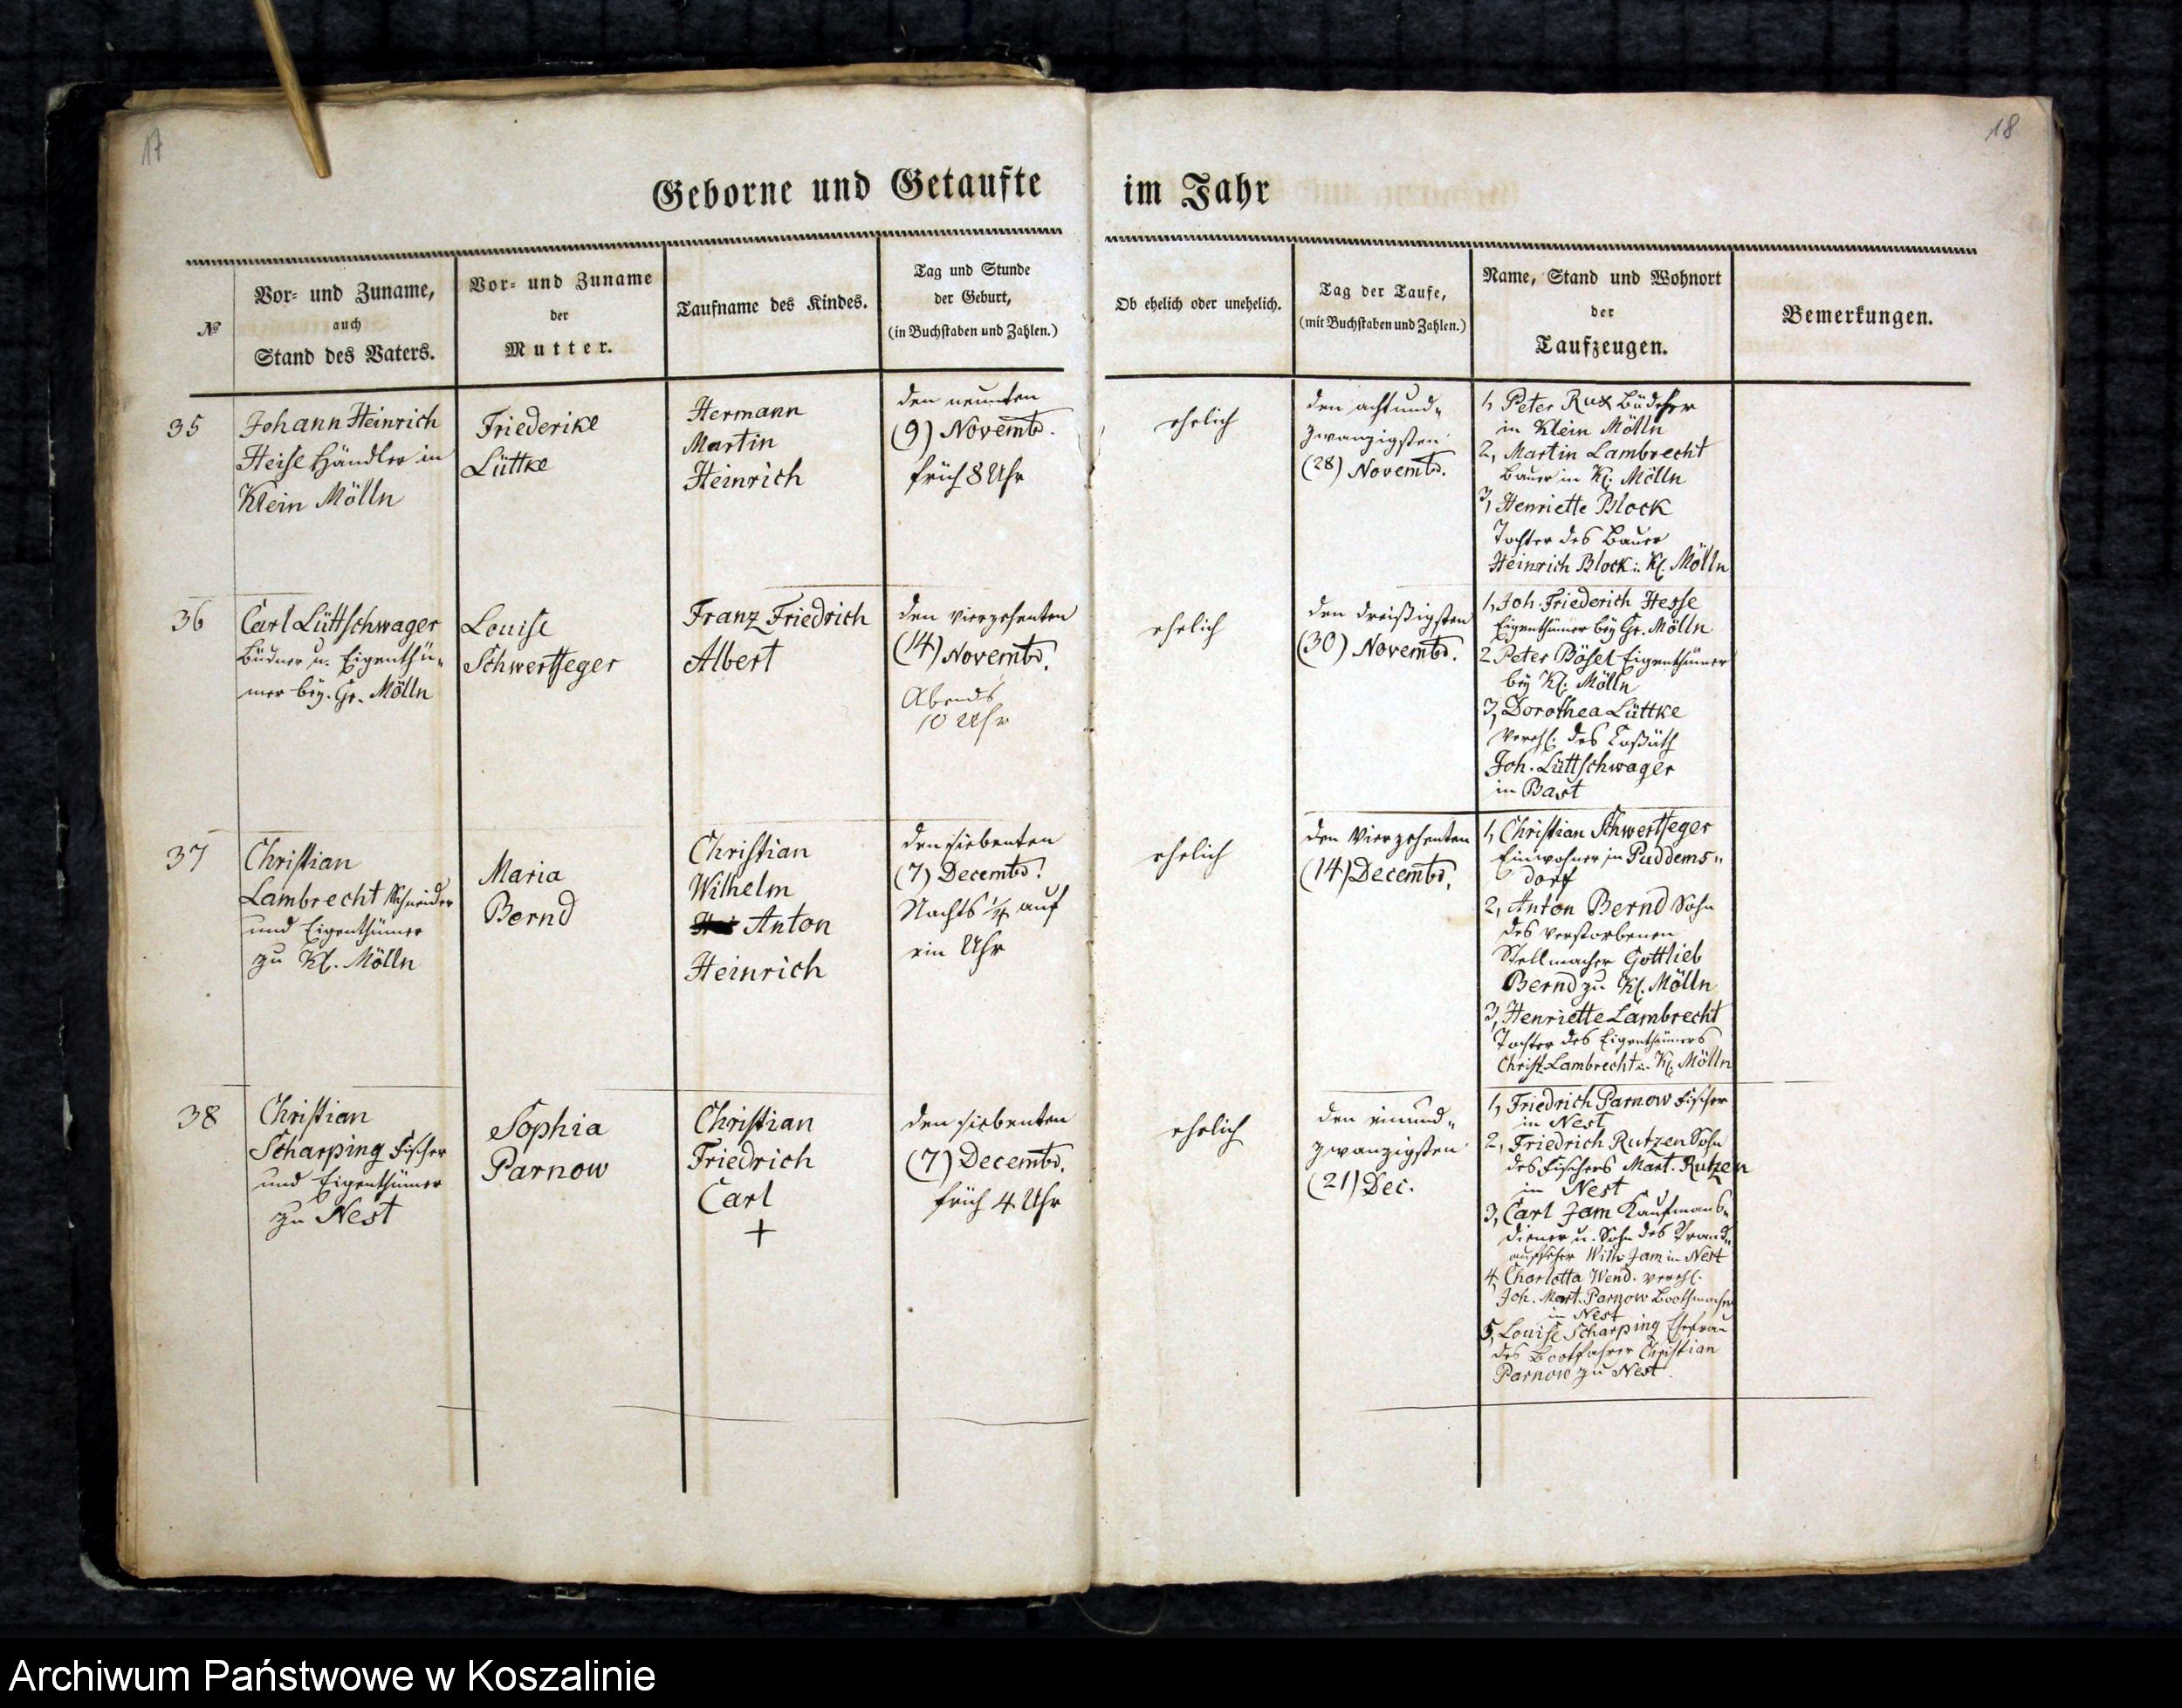 17
18
Geborne und Getaufte im Jahr
№
Vor- und Zuname,
auch
Stand des Vaters.
Vor- und Zuname
der
Mutter.
Taufname des Kindes.
Tag und Stunde
der Geburt,
(in Buchstaben und Zahlen.)
Ob ehelich oder unehelich.
Tag der Taufe,
(mit Buchstaben und Zahlen.)
Name, Stand und Wohnort
der
Taufzeugen.
Bemerkungen.
35
Johann Heinrich
Heise Händler in
Klein Mölln
Friederike
Lüttke
Hermann
Martin
Heinrich
den neunten
(9) Novembr.
früh 8 Uhr
ehelich
den achtund„
zwanzigsten
(28) Novembr.
1, Peter Rux Büdner
in Klein Mölln
2, Martin Lambrecht
Bauer in Kl. Mölln
3, Henriette Block
Tochter des Bauer
Heinrich Block in Kl. Mölln
36
Carl Lüttschwager
Büdner u. Eigenthü„
mer bey. Gr. Mölln
Louise
Schwertfeger
Franz Friedrich
Albert
den vierzehenten
(14) Novembr.
Abends
10 Uhr
ehelich
den dreißigsten
(30) Novembr.
1, Joh. Friederich Hesse
Eigenthümer bey Gr. Mölln
2 Peter Bösel Eigenthümer
bey Kl. Mölln
3, Dorothea Lüttke
verehl. des Coßäth
Joh. Lüttschwager
in Bast
37
Christian
Lambrecht Schneider
und Eigenthümer
zu Kl. Mölln
Maria
Bernd
Christian
Wilhelm
Anton
Heinrich
den siebenten
(7) Decembr.
Nachts ¼ auf
ein Uhr
ehelich
den Vierzehenten
(14) Decembr.
1, Christian Schwertfeger
Einwohner in Puddems„
dorf
2, Anton Bernd Sohn
des verstorbenen
Stellmacher Gottlieb
Bernd zu Kl. Mölln
3, Henriette Lambrecht
Tochter des Eigenthümers
Christ. Lambrecht in Kl. Mölln
38
Christian
Scharping Fischer
und Eigenthümer
zu Nest
Sophia
Parnow
Christian
Friedrich
Carl
+
den siebenten
(7) Decembr.
früh 4 Uhr
ehelich
den einund„
zwanzigsten
(21) Dec.
1, Friedrich Parnow Fischer
in Nest
2, Friedrich Rutzen Sohn
des Fischers Mart. Rutzen
in Nest
3, Carl Jam Kaufmans„
diener u. Sohn des Strand„
aufseher Wilh. Jam in Nest
4, Charlotta Wend. verehl.
Joh. Mart. Parnow Bootsmacher
in Nest
5, Louise Scharping Ehefrau
des Bootfahrer Christian
Parnow zu Nest.
Archiwum Państwowe w Koszalinie